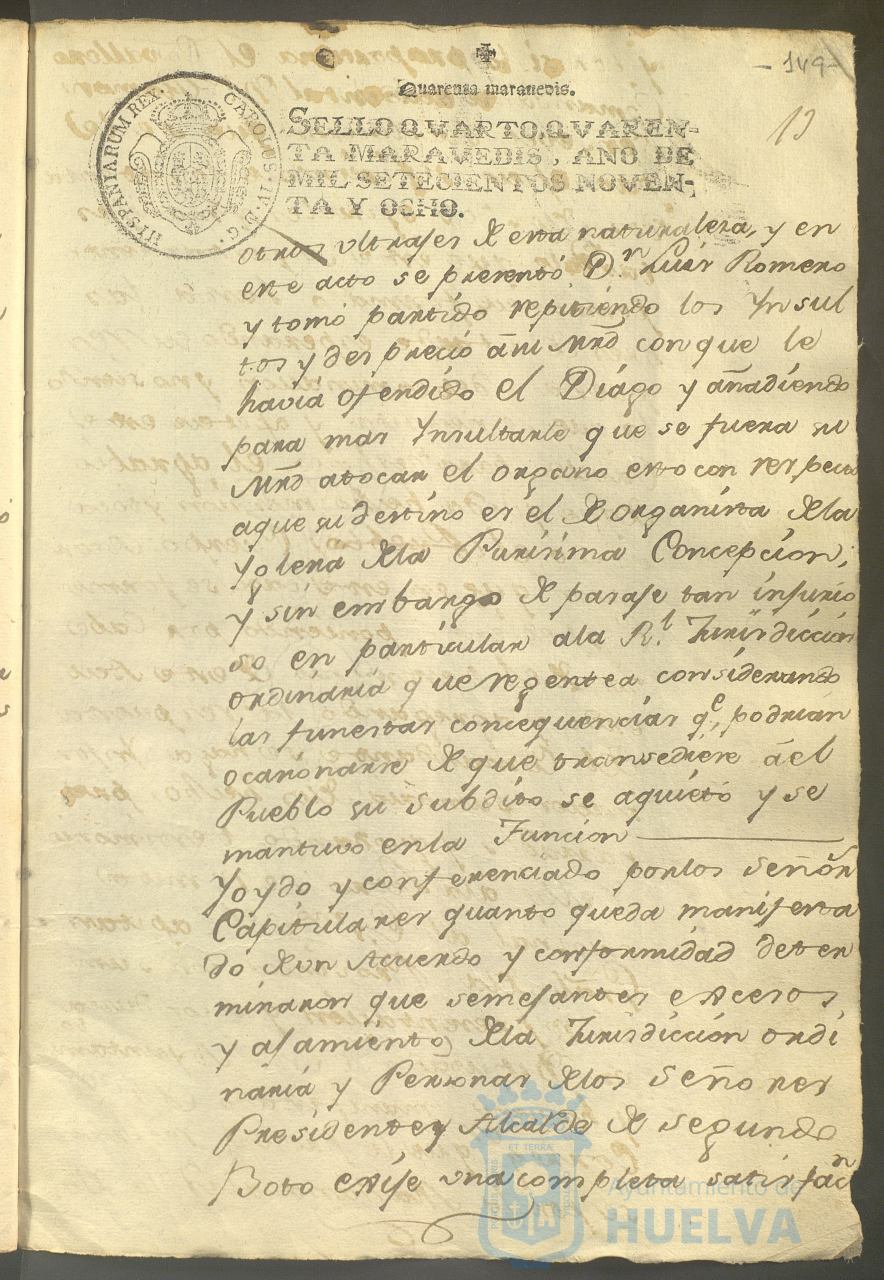 - 149 -
13
Quarenta maravedis.
HISPANIARUM REX. CAROLUS. IV. D. G.
SELLO QVARTO, QVAREN-
TA MARAVEDIS, AÑO DE
MIL SETECIENTOS NOVEN-
TA Y OCHO.
otros ultrajes de esta naturaleza, y en
este acto se presentó Dn. Luis Romero
y tomó partido repitiendo los Ynsul
tos y desprecio á su Mrd con que le
havia ofendido el Diágo y añadiendo
para mas Ynsultarle que se fuera su
Mrd atocar el organo esto con respecto
aque su destino es el de organista dela
Yglesia dela Purisima Concepcion;
y sin embargo de paraje tan injurio
so en particular ala Rl. Jurisdiccion
ordinaria que regentea considerando
las funestas concequencias qe. podrian
ocacionarse de que transediere áel
Pueblo su subdito se aquietó y se
mantuvo enla Funcion
Yoydo y conferenciado porlos señors
Capitulares quanto queda manifesta
do deun Acuerdo y conformidad deter
minaron que semejantes excesos
y ajamiento dela Jurisdiccion ordi
naria y Personas delos señores
Presidente y Alcalde de segundo
Boto exije una completa satisfacn
Ayuntamiento de
HUELVA